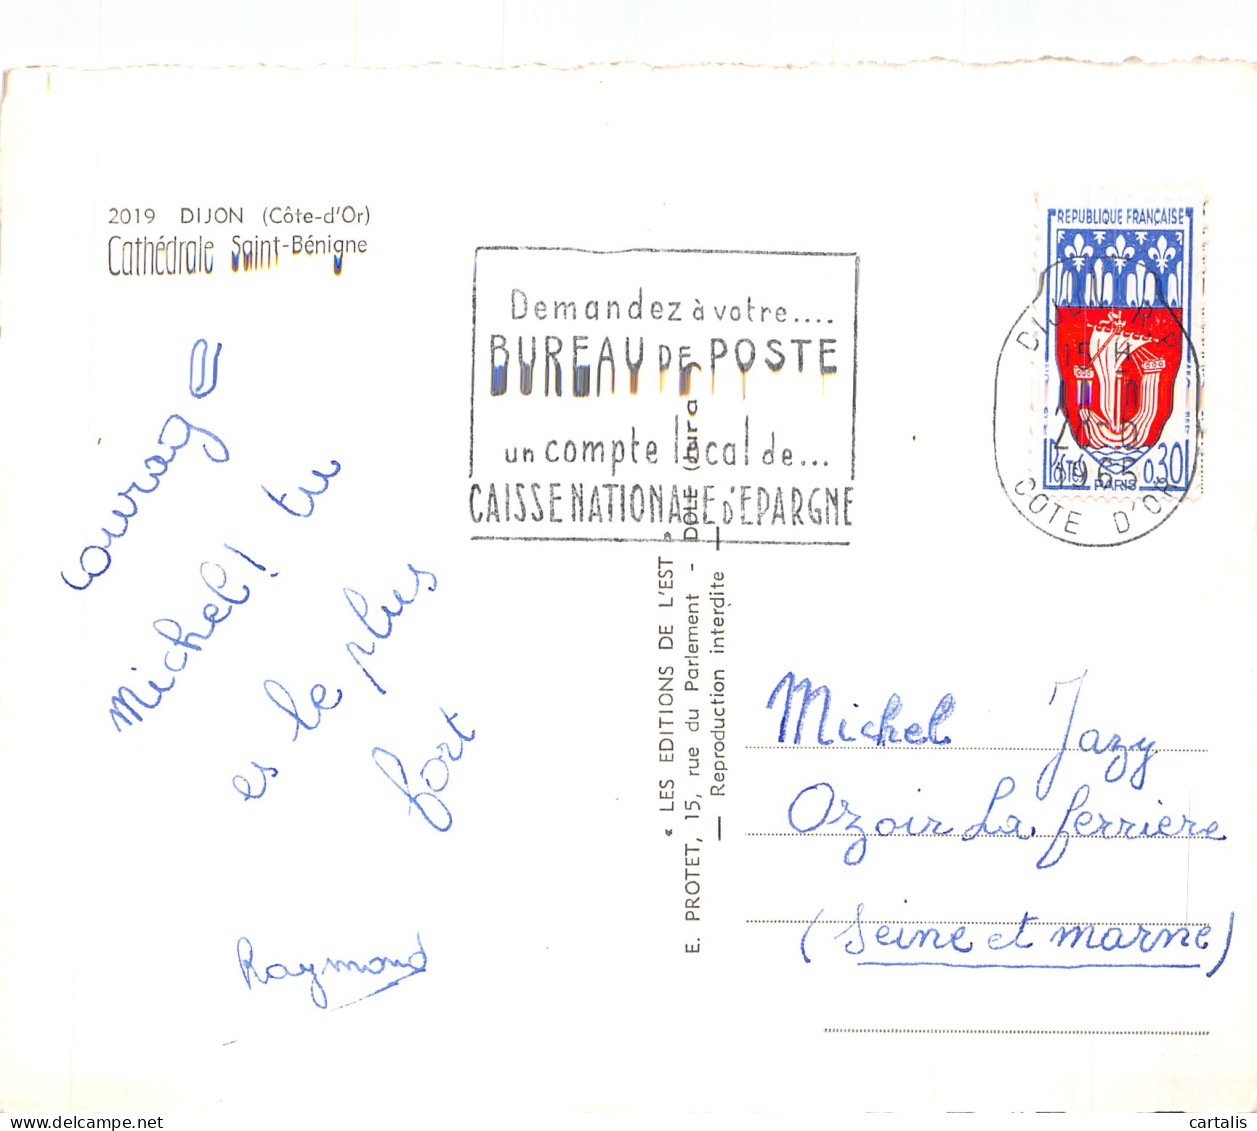 2019 DIJON (Côte-d'Or)
Cathédrale Saint-Bénigne
Demandez à votre....
BUREAU DE POSTE
un compte local de...
CAISSE NATIONALE D'EPARGNE
REPUBLIQUE FRANÇAISE
0,30
PARIS
DIJON R.P.
15 H
1965
COTE D'OR
courage
Michel! tu
es le plus
fort
Raymond
« LES EDITIONS DE L'EST »
E. PROTET, 15, rue du Parlement - DOLE (Jura)
— Reproduction interdite —
Michel Jazy
Ozoir La ferrière
(Seine et marne)
cartalis